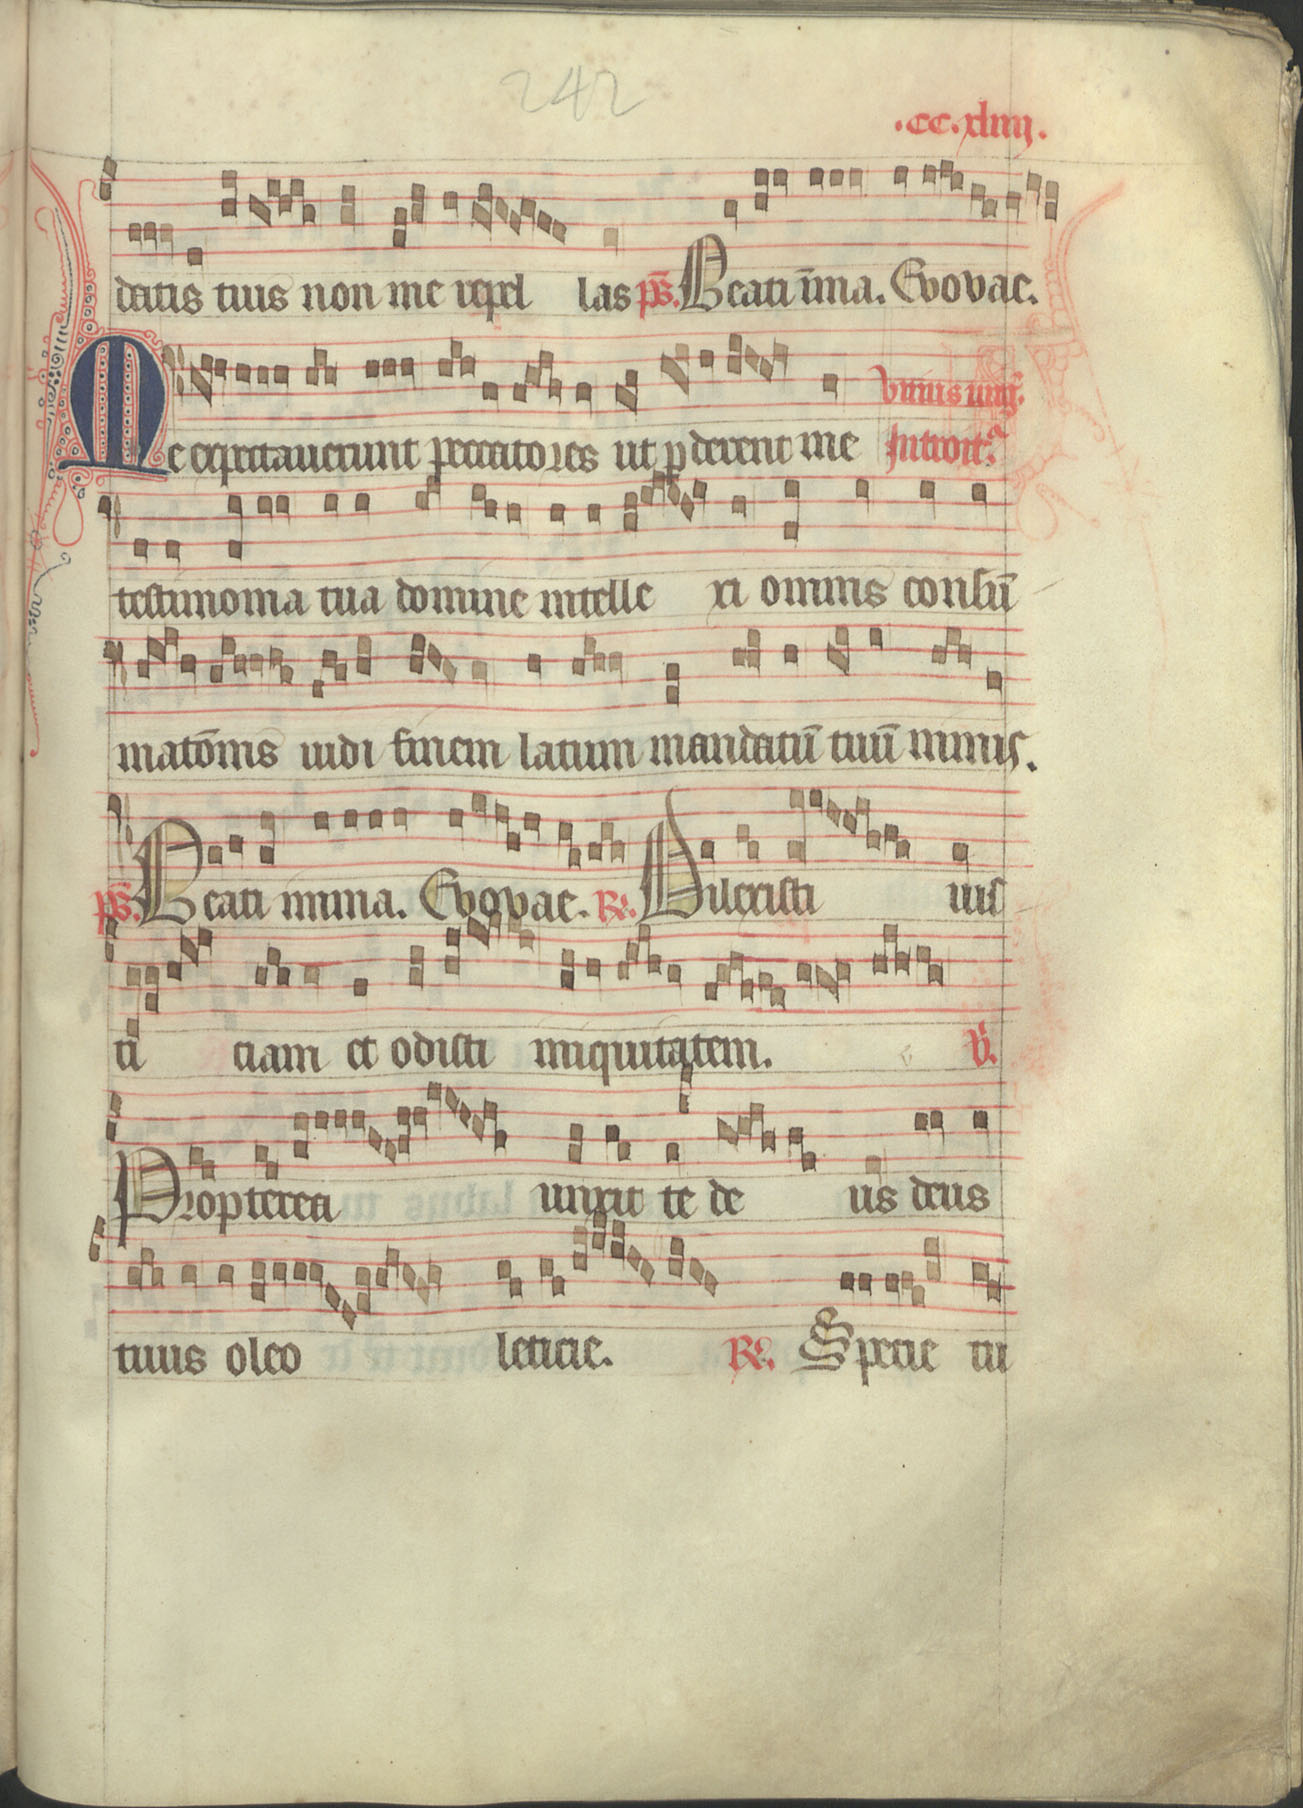 242
.cc.xliiij.
datis tuis non me repel las ps̄. Beati īma. Evovae.
Me expectauerunt peccatores ut pderent me Vnius uirḡ. Introit9
testimonia tua domine intelle xi omnis consū
matōnis uidi finem latum mandatū tuū nimis.
ps̄. Beati imma. Evovae. R̄. Dilexisti ius
ti ciam et odisti iniquitatem. V̄.
Propterea unxit te de us deus
tuus oleo leticie. R̄. Specie tu